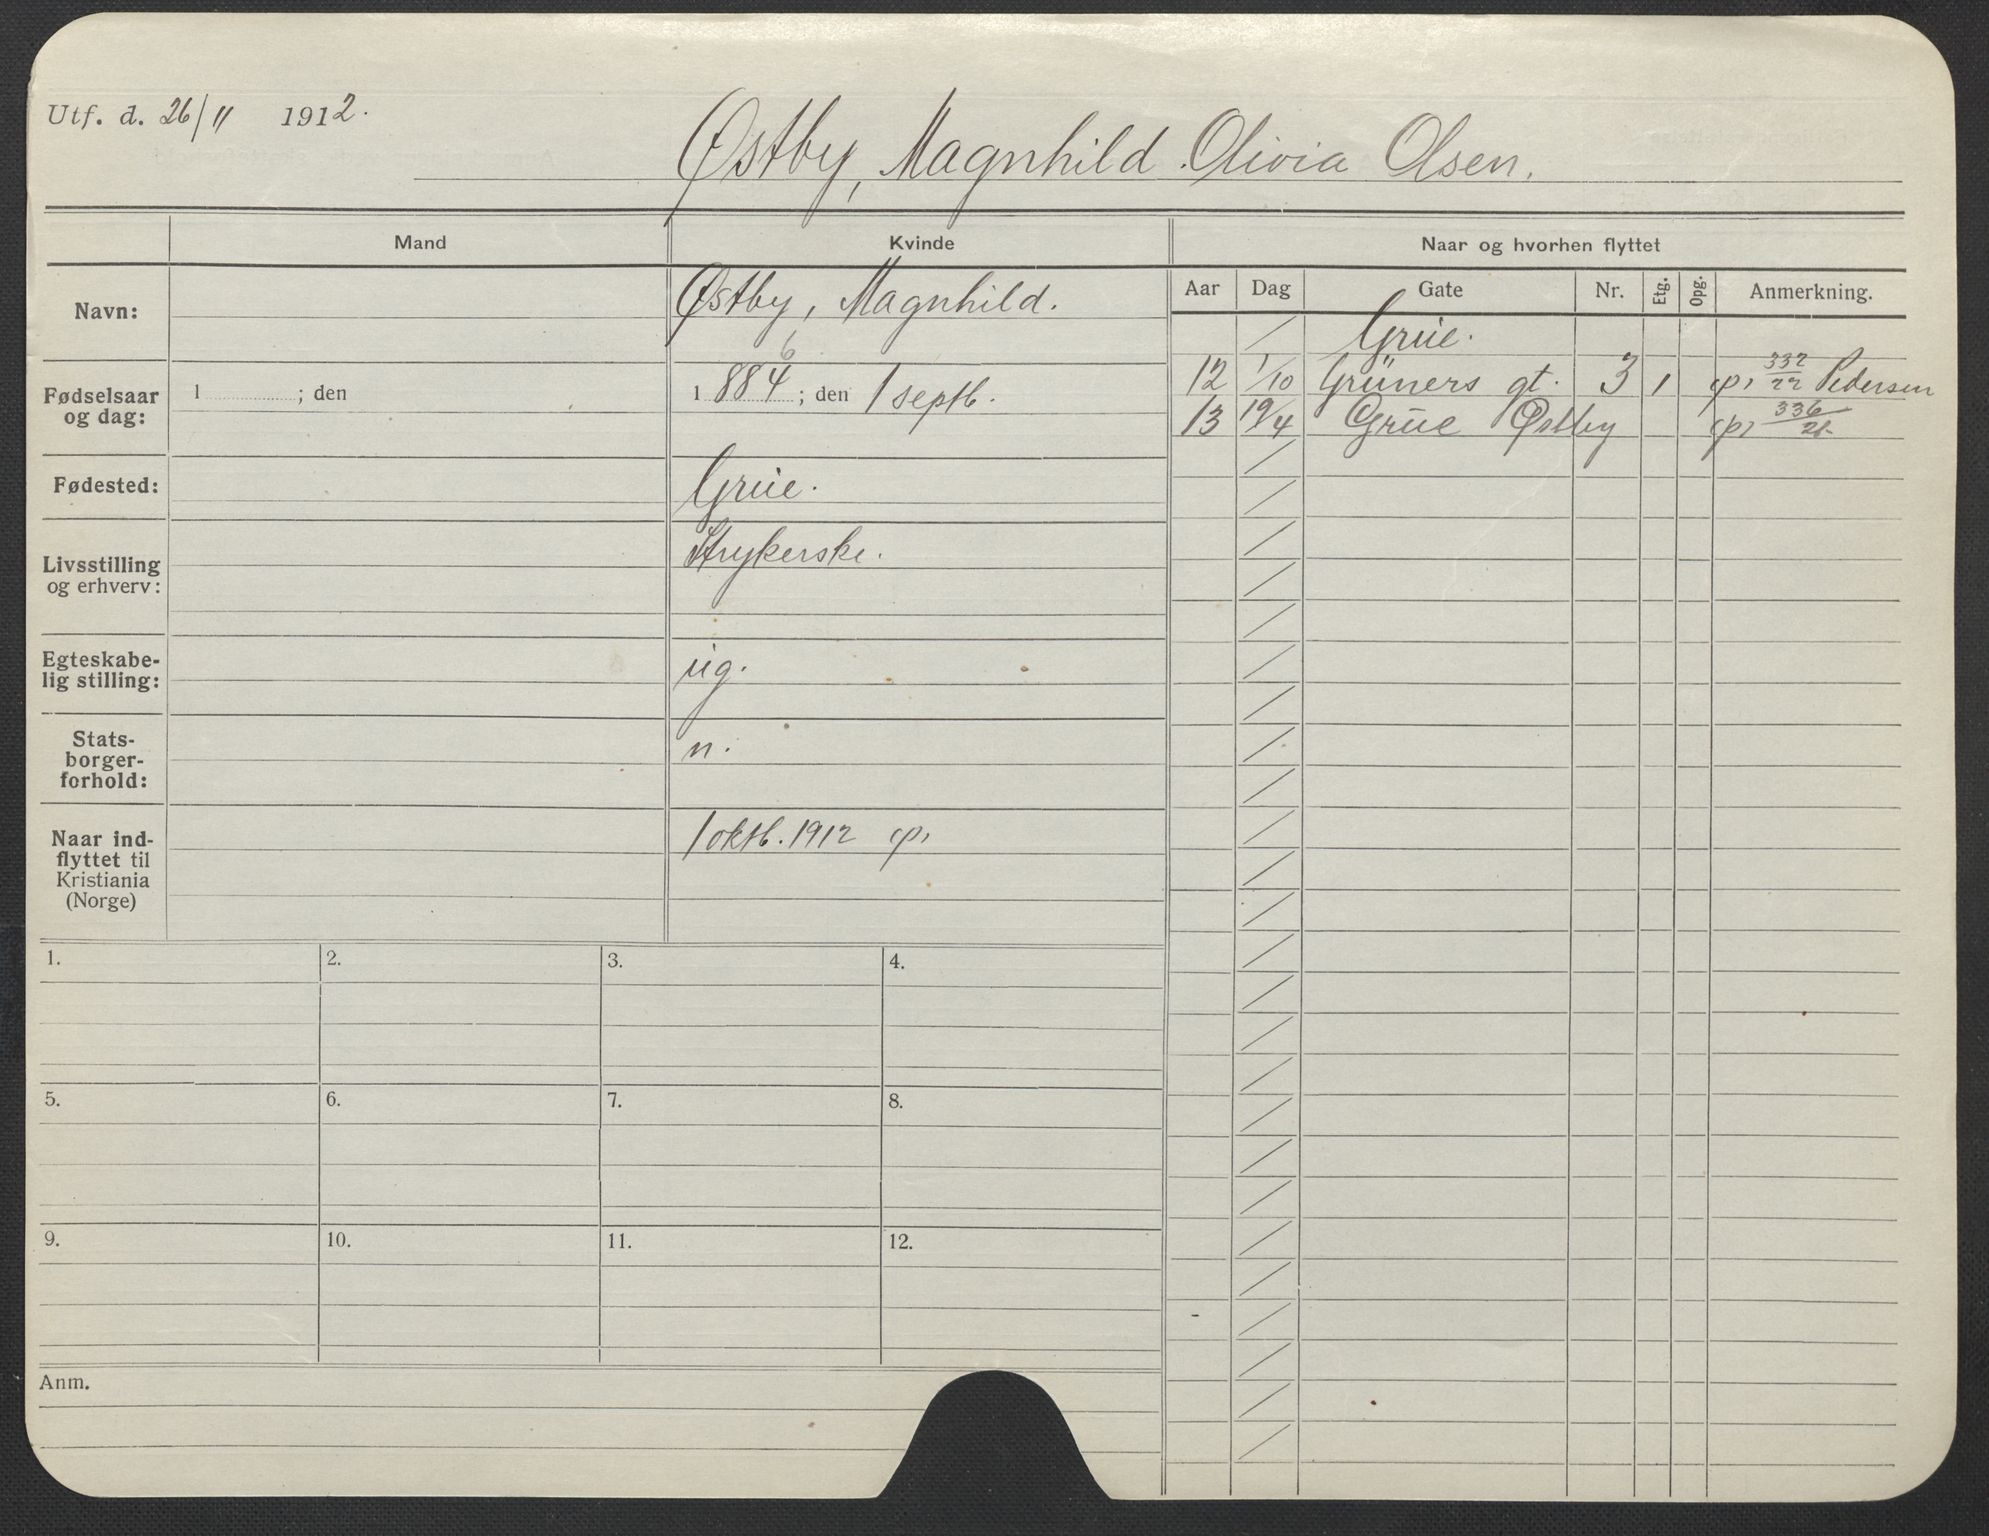 Utf. d. 26/11 1912.
Østby, Magnhild Olivia Olsen.
Mand
Kvinde
Naar og hvorhen flyttet
Navn:
Østby, Magnhild.
Aar Dag Gate Nr. Etg. Opg. Anmerkning.
Grue.
12 1/10 Grüners gt. 3 1 332/22 Pedersen
13 19/4 Grue Østby 336/21
Fødselsaar
og dag:
1 ; den
6
1884 ; den 1 septb.
Fødested:
Grue.
Livsstilling
og erhverv:
Strykerske.
Egteskabe-
lig stilling:
ug.
Stats-
borger-
forhold:
n.
Naar ind-
flyttet til
Kristiania
(Norge)
1 oktb. 1912
1. 2. 3. 4.
5. 6. 7. 8.
9. 10. 11. 12.
Anm.